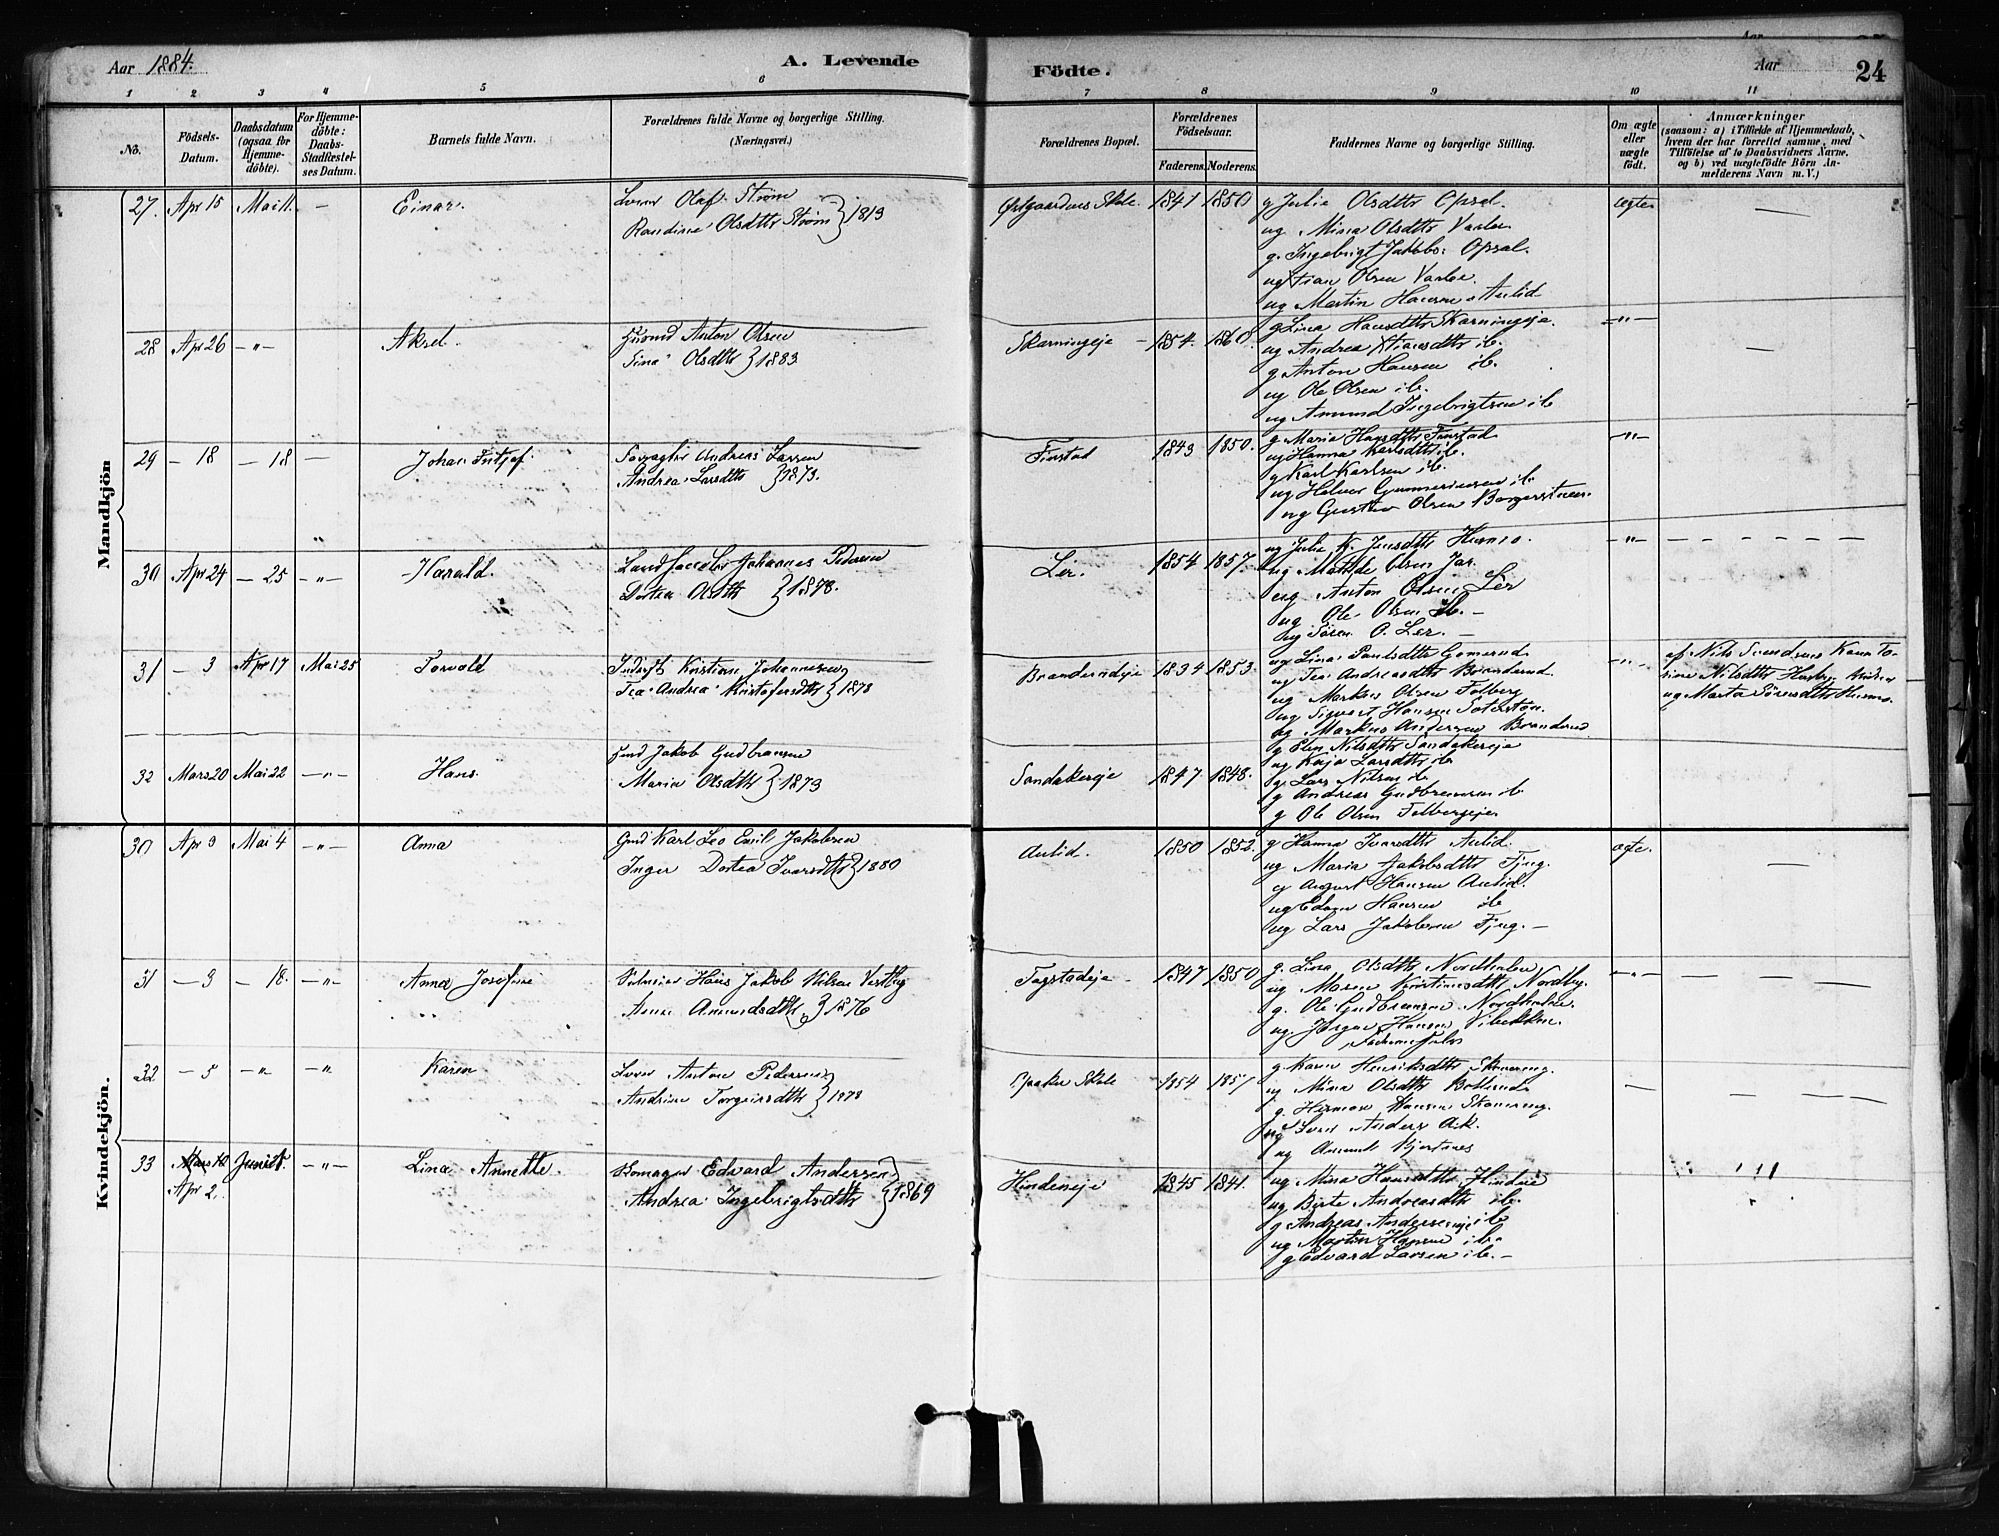 Aar 1884.
A. Levende
Födte.
Aar
Aar
24
1 2 3 4 5 6 7 8 9 10 11
No.
Födsels-
Datum.
Daabsdatum
(ogsaa for
Hjemme-
döbte).
For Hjemme-
döbte:
Daabs-
Stadfæstel-
ses Datum.
Barnets fulde Navn.
Forældrenes fulde Navne og borgerlige Stilling.
(Næringsvei.)
Forældrenes Bopæl.
Forældrenes
Födselsaar.
Faderens.
Moderens.
Faddernes Navne og borgerlige Stilling.
Om ægte
eller
uægte
födt.
Anmærkninger
(saasom: a) i Tilfælde af Hjemmedaab,
hvem der har forrettet samme, med
Tilföielse af to Daabsvidners Navne.
og b) ved uegtefödte Börn An-
melderens Navn m. V.)
Mandkjön
27. Apr 15 Mai 11. — Einar.
Olaf Strøm
Randine Olsdtr Strøm } 1813
Skole 1841 1850
g Julie Olsdttr Opsal.
ug Mina Olsdttr Varlo
g. Ingebrigt Jakobs: Opsal.
ug Xtian Olsen Varloe.
ug Martin Hansen Aulid
ægte —
28 Apr 26 —"— Aksel.
Husmd Anton Olsen
Tina Olsdttr } 1883
Skarningeje — 1854. 1860.
g Lina Hansdttr Skarningeje.
ug Andrea Xtiansdttr ib.
g Anton Hansen ib.
ug Ole Olsen ib.
ug Amund Ingebrigtsen ib
—"— —
29 — 18 — 18 — Johan Fritjof.
Andreas Larsen
Andrea Larsdttr } 1873.
Finstad 1843 1850.
g Maria Hansdttr Finstad
ug Hanna Karlsdttr ib.
g Karl Karlsen ib.
ug Halvor Gunneriusen ib
ug Gustav Olsen
—"— —
30 Apr 24 — 25 —"— Harald.
Johannes Pedersen
Dortea Olsdttr } 1878.
Ler. 1854 1857.
ug Julie K. Jensdttr
ug Matilde Olsen Jar.
ug Anton Olsen Ler
ug Ole Olsen ib. —
ug Søren O. Ler. —
—"— — — — — —
31 — 3 Apr 17 Mai 25 Torvald
Inderst Kristian Johannesen
Tea Andrea Kristofersdttr } 1878
Branderudeje 1834 1853.
ug Lina Paulsdttr Gomerud
ug Tea Andreasdttr Branderud.
ug Markus Olsen Folberg
ug Sigvart Hansen
ug Markus Andersen Branderud
—"— af Nils Svendsens Kone To-
rine Nilsdttr
ug Marta Sørensdttr
32 Mars 20 Mai 22 —"— Hans.
Husmd Jakob Gudbransen
Maria Olsdttr } 1873
Sandakereje 1847. 1848.
g Elen Nilsdttr Sandakereje
ug Kaja Larsdttr ib
g Lars Nilsen ib
g Andreas Gudbransen ib
g Ole Olsen Folbergeje
Kvindekjön.
30 Apr 9 Mai 4 —"— Anna
Karl Leo Emil Jakobsen
Inger Dortea Ivarsdttr } 1880
Aulid. 1850 1852.
g Hanna Ivarsdttr Aulid
ug Maria Jakobsdttr Fjeg.
ug August Hansen Aulid.
ug Edvar Hansen ib
ug Lars Jakobsen Fjeg. —
ægte. —
31 — 3 — 18. —"— Anna Josefine
Hans Jakob Nilsen Vestby
Anne Amundsdttr } 1876
Fagstadeje 1847 1850
g. Lina Olsdttr
ug Maren Kristiansdttr Nordby.
g. Ole Gudbransen
ug Jørgen Hansen
—"— — — —
32 — 5 —"— —"— Karen
Anton Pedersen
Andrine Torgersdttr } 1878
Skole 1854 1857
g Karen Henriksdttr Skonneng.
ug Mina Olsdttr
g. Herman Hansen Skonneng.
ug Anders Ask.
ug Amund Hjertnes
— — — —
33 Mars 10 Juni 1. —"— Lina Annette.
Apr 2.
Skomager Edvard Andersen
Andrea Ingebrigtsdttr } 1869
Hindeneje 1845 1841.
ug Mina Hansdttr
ug Berte Andreasdttr ib.
g Andreas Andersen ib
ug Martin Hansen ib.
g Edvard Larsen ib. —